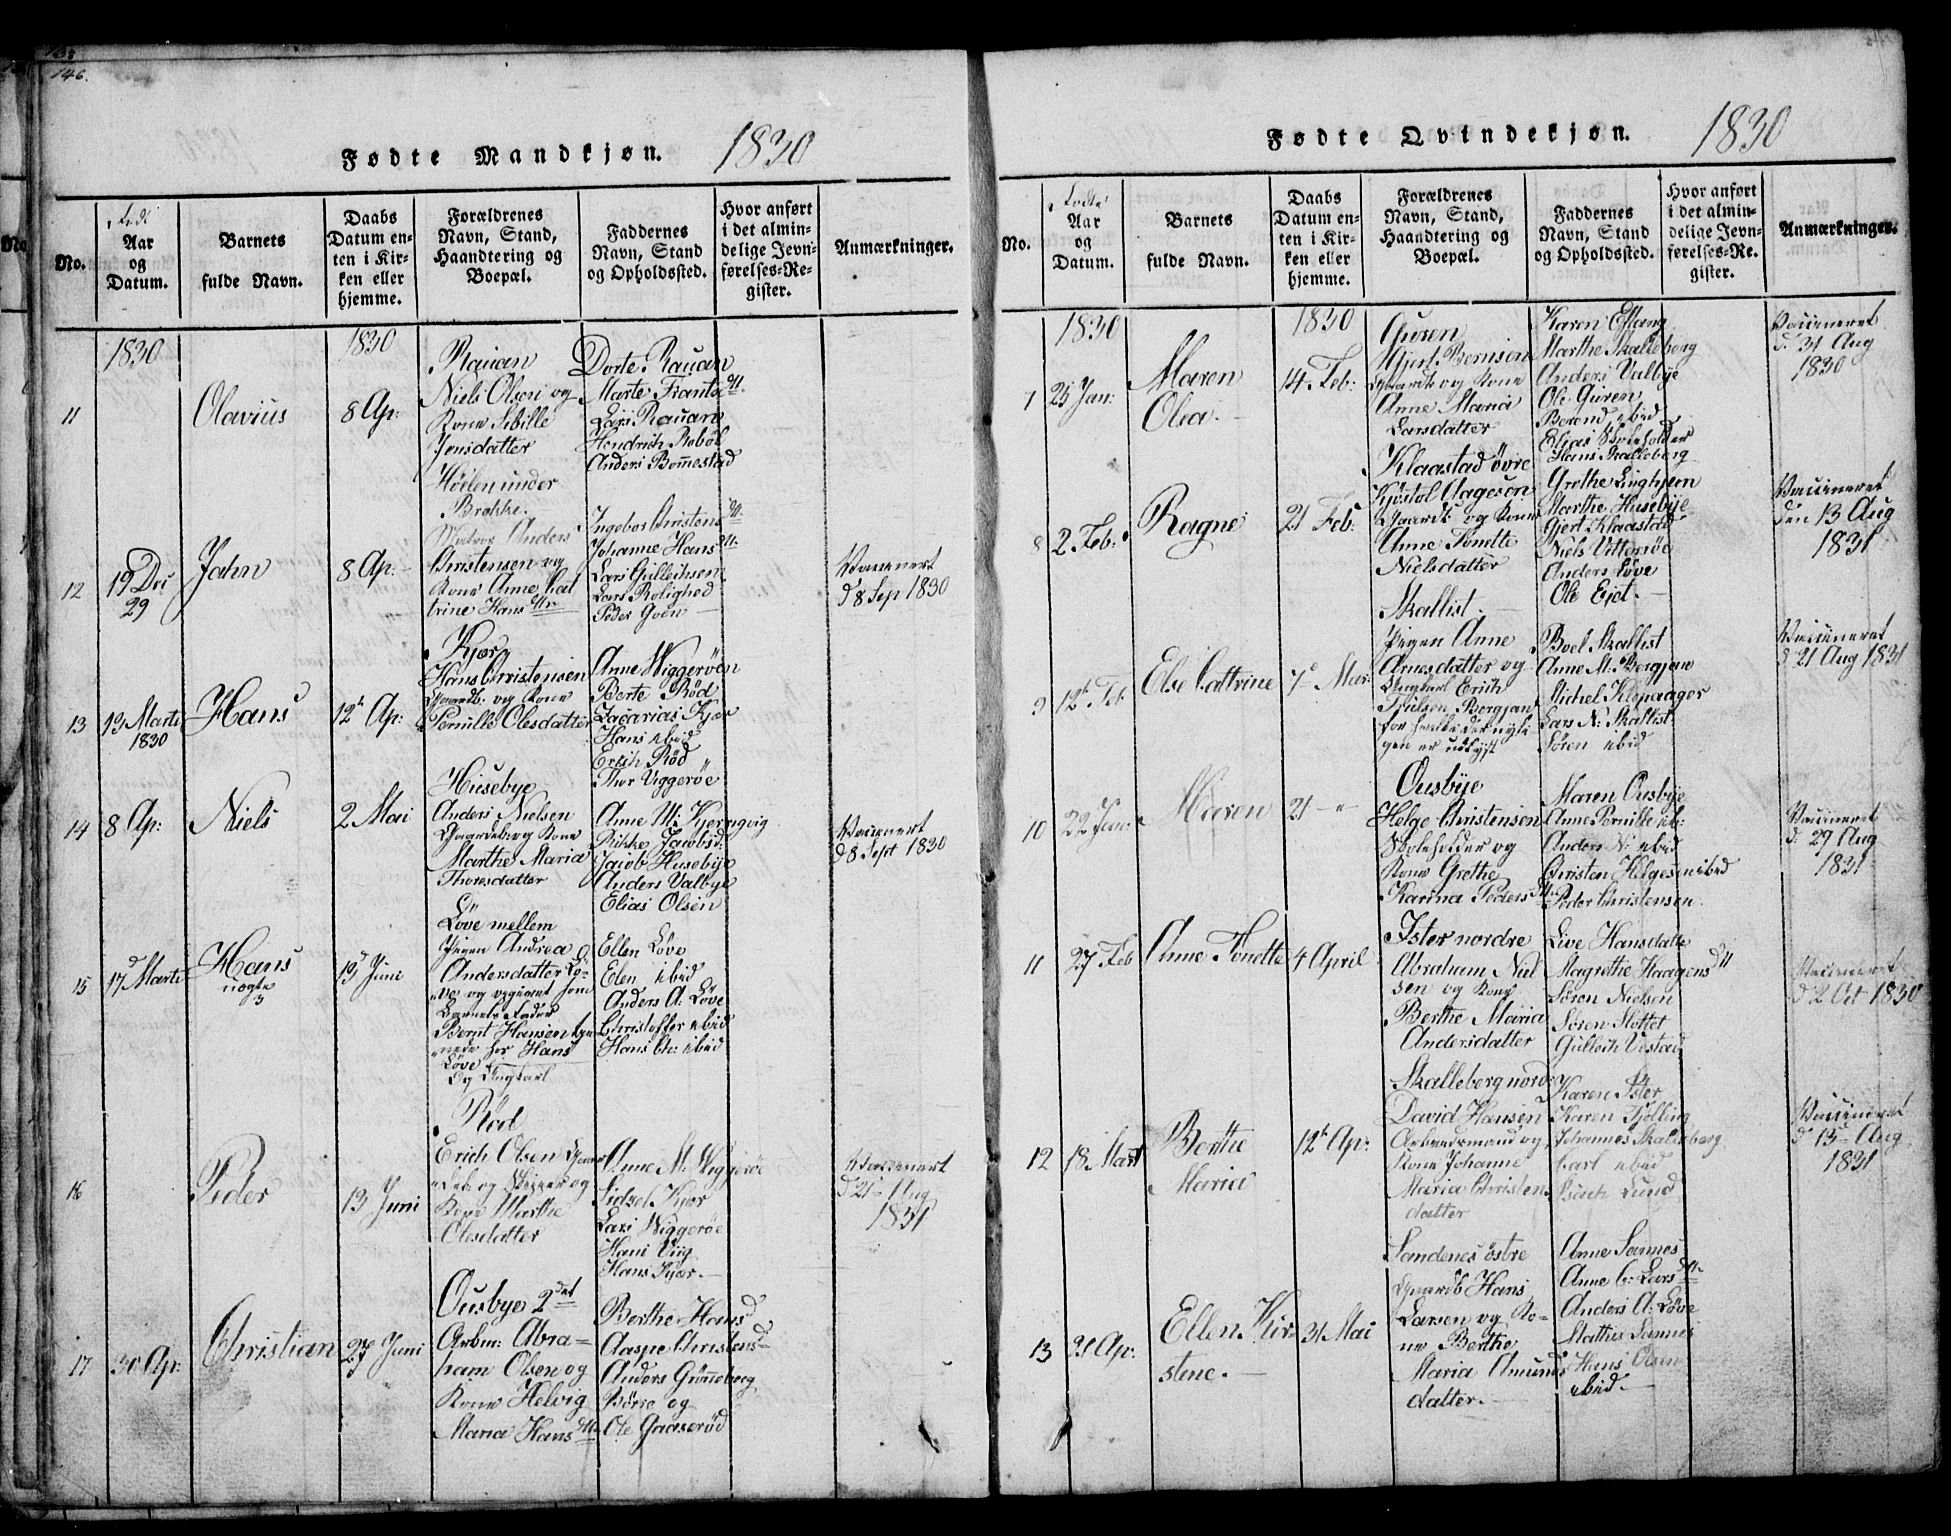 146.
Fødte Mandkjøn. 1830
No.
Født
Aar
og
Datum.
Barnets
fulde Navn.
Daabs
Datum en-
ten i Kir-
ken eller
hjemme.
Forældrenes
Navn, Stand,
Haandtering og
Boepæl.
Faddernes
Navn, Stand
og Opholdssted.
Hvor anført
i det almin-
delige Jevn-
førelses-Re-
gister.
Anmærkninger.
1830
1830
11
Olavius
8 Ap:
Rauan
Niels Olsen og
Kone Sibille
Jensdatter
Dorte Rauan
Marte Frants dtt.
Lars Rauan
Hendrich Røbøl
Anders Bommestad
12
19 Dec
29
Jahn
8 Ap:
Høelen under
Brekke.
Anders
Christensen og
Kone Anne Cat
trine Hans dttr
Ingebor Christens dtt.
Johanne Hans dtt.
Lars Gulleichsen
Lars Rolighed
Peder Goen
Vaccinert
d 8 Sep 1830
13
13 Marts
1830
Hans
12te Ap:
Kjær
Hans Christensen
Gaardb. og Kone
Pernille Olesdatter
Anne Wiggerøen
Berte Rød
Zacarias Kjær
Hans ibid
Erich Rød
Thor Viggerøe
14
8 Ap:
Niels
2 Mai
Husebye
Anders Nielsen
Gaardb og Kone
Marthe Maria
Thoresdatter
Anne M: Kjerringvig
Rikke Jacobsd.
Jacob Husebye
Anders Valbye
Elias Olsen
Vaccinert
d 8 Sept 1830
15
17 Marts
Hans
uægte
3
13 Juni
Løve mellem
Pigen Andrea
Andersdatter Lø-
ve og opgivet som
Barnets Fader
Bernt Hansen tje
nede for Hans
Løve
Og Ungkarl
Ellen Løve
Elen ibid
Anders A: Løve
Christoffer ibid
Hans Chr: ibid
16
Peder
13 Juni
Rød
Erich Olsen Gaar
deb og Skipper og
Kone Marthe
Olesdatter
Anne M. Wiggerøe
Sidsel Kjær
Lars Wiggerøe
Hans Viig
Hans Kjær.
Vaccinert
d 21 Aug
1831
17
30 Ap:
Christian
27 Juni
Ousbye 2det
Arbm: Abra=
ham Olsen og
Kone Helvig
Maria Hans dtt.
Berthe Hans d
Aaspe Christens d
Anders Grønneberg
Børre og
Ole Gaaserød
Fødte Qvindekjøn. 1830
No.
Fødte
Aar
og
Datum.
Barnets
fulde Navn.
Daabs
Datum en-
ten i Kir-
ken eller
hjemme.
Forældrenes
Navn, Stand,
Haandtering og
Boepæl.
Faddernes
Navn, Stand
og Opholdssted.
Hvor anført
i det almin-
delige Jevn-
førelses-Re-
gister.
Anmærkninger.
1830
1830
7
25 Jan:
Maren
Olea.
14 Feb:
Guren
Gjert Berntsen
Gaardb og Kone
Anne Maria
Larsdatter
Karen Eftang
Marthe Skalleberg
Anders Valbye
Ole Guren
Berend ibid
Elias Skoleholder
Hans Skalleberg
Vaccineret
d. 31 Aug
1830
8
2 Feb:
Ragne
21 Feb:
Klaastad øvre
Kjøstol Aagesen
Gaardb og Kone
Anne Tonette
Nielsdatter
Grethe Linghjem
Marthe Husebye
Gjert Klaastad
Niels Vittersøe
Anders Løve
Ole Ejet.
Vaccineret
den 13 Aug
1831
9
12te Feb
Else Cattrine
7de Mar:
Skallist.
Pigen Anne
Arnesdatter og
Ungkarl Erich
Trulsen Bergjan
for hvilke der nyli
gen er udlyst
Boel Skallist
Anne M. Bergjan
Michel Klepaager
Lars N: Skallist
Søren ibid
Vaccineret
d 21 Aug 1831
10
22 Jan:
Maren
21 - "
Ousbye
Helge Christensen
Skoleholder og
Kone Grethe
Karina Peders dtt.
Maren Ousbye
Anne Pernille ib:
Anders N: ibid
Christen Helgesen ibid
Peder Christensen
Vaccineret
d. 29 Aug
1831
11
27 Feb
Anne Tonette
4 April
Ister nordre
Abraham Niel
sen og Kone
Berthe Maria
Andersdatter
Live Hansdatte
Magrethe Haagens dtt
Søren Nielsen
Søren Slottet
Gulleich Vestad
Vaccineret
d 2 Oct 1830
12
18 Mart
Berthe
Maria
12te Ap:
Skalleberg nord:
David Hansen
Arbeidsmand og
Kone Johanne
Maria Christen
datter
Karen Ister
Karen Tjølling
Johannes Skalleberg
Carl ibid
Lund
Vaccineret
d 13 Aug
1831
13
21 Ap:
Ellen Kir-
stene.
31 Mai
Sandenes østre
Gaardb Hans
Larsen og Ko-
ne Berthe
Maria Amunds
datter.
Anne Sannes
Anne C: Lars dtt.
Anders A: Løve
Mattis Sannes
Hans Olsen
ibid.